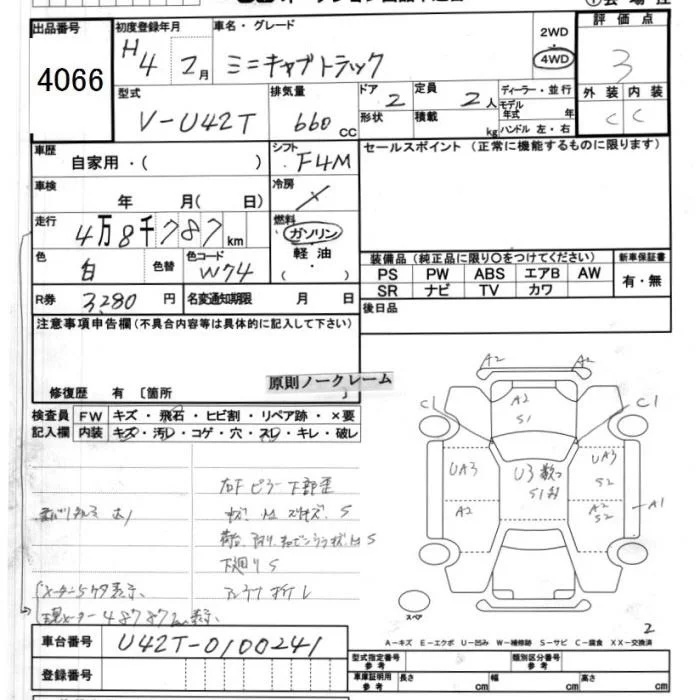 出品番号
4066
初度登録年月
H4 2月
車名・グレード
ミニキャブトラック
2WD
4WD
評価点
3
外装 内装
C C
型式
V-U42T
排気量
660 CC
ドア 2
形状
定員 2人
積載 kg
ディーラー・並行
モデル年式 年
ハンドル 左・右
車歴
自家用・( )
シフト
F4M
セールスポイント (正常に機能するものに限ります)
車検
年 月( 日)
冷房
走行
4万8千787km
燃料
ガソリン
・
軽油
( )
色
白
色替
色コード
W74
装備品 (純正品に限り〇をつけてください)
PS PW ABS エアB AW
SR ナビ TV カワ
新車保証書
有・無
R券 3,280 円
名変通知期限 月 日
後日品
注意事項申告欄 (不具合内容等は具体的に記入して下さい)
原則ノークレーム
修復歴 有 〔箇所 〕
検査員 FW キズ・飛石・ヒビ割・リペア跡・×要
記入欄 内装 キズ・汚レ・コゲ・穴・スレ・キレ・破レ
右Fピラー下部歪
下廻りS
メーター5ケタ表示
現メーター48787km表示
A2 A2
A2
S1
C1 C1
UA3 U3 UA3
S2
A2 A2
S2
A1
スペア
2
A-キズ E-エクボ U-凹み W-補修跡 S-サビ C-腐食 XX-交換済
車台番号 U42T-0100241
登録番号
型式指定番号 参考
類別区分番号 参考
車庫証明用 参考 長さ cm 幅 cm 高さ cm